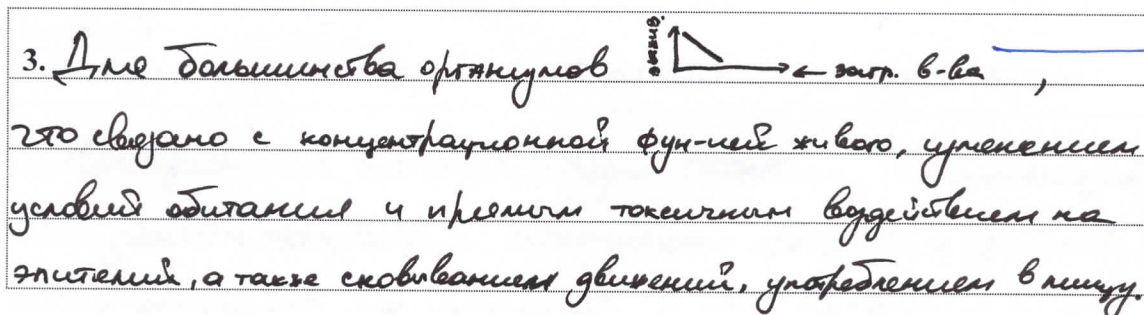 3. Для большинства организмов ← загр. в-ва ,
что связано с концентрационной фун-цией живого, изменением
условий обитания и прямым токсичным воздействием на
эпителий, а также сковыванием движений, употреблением в пищу.